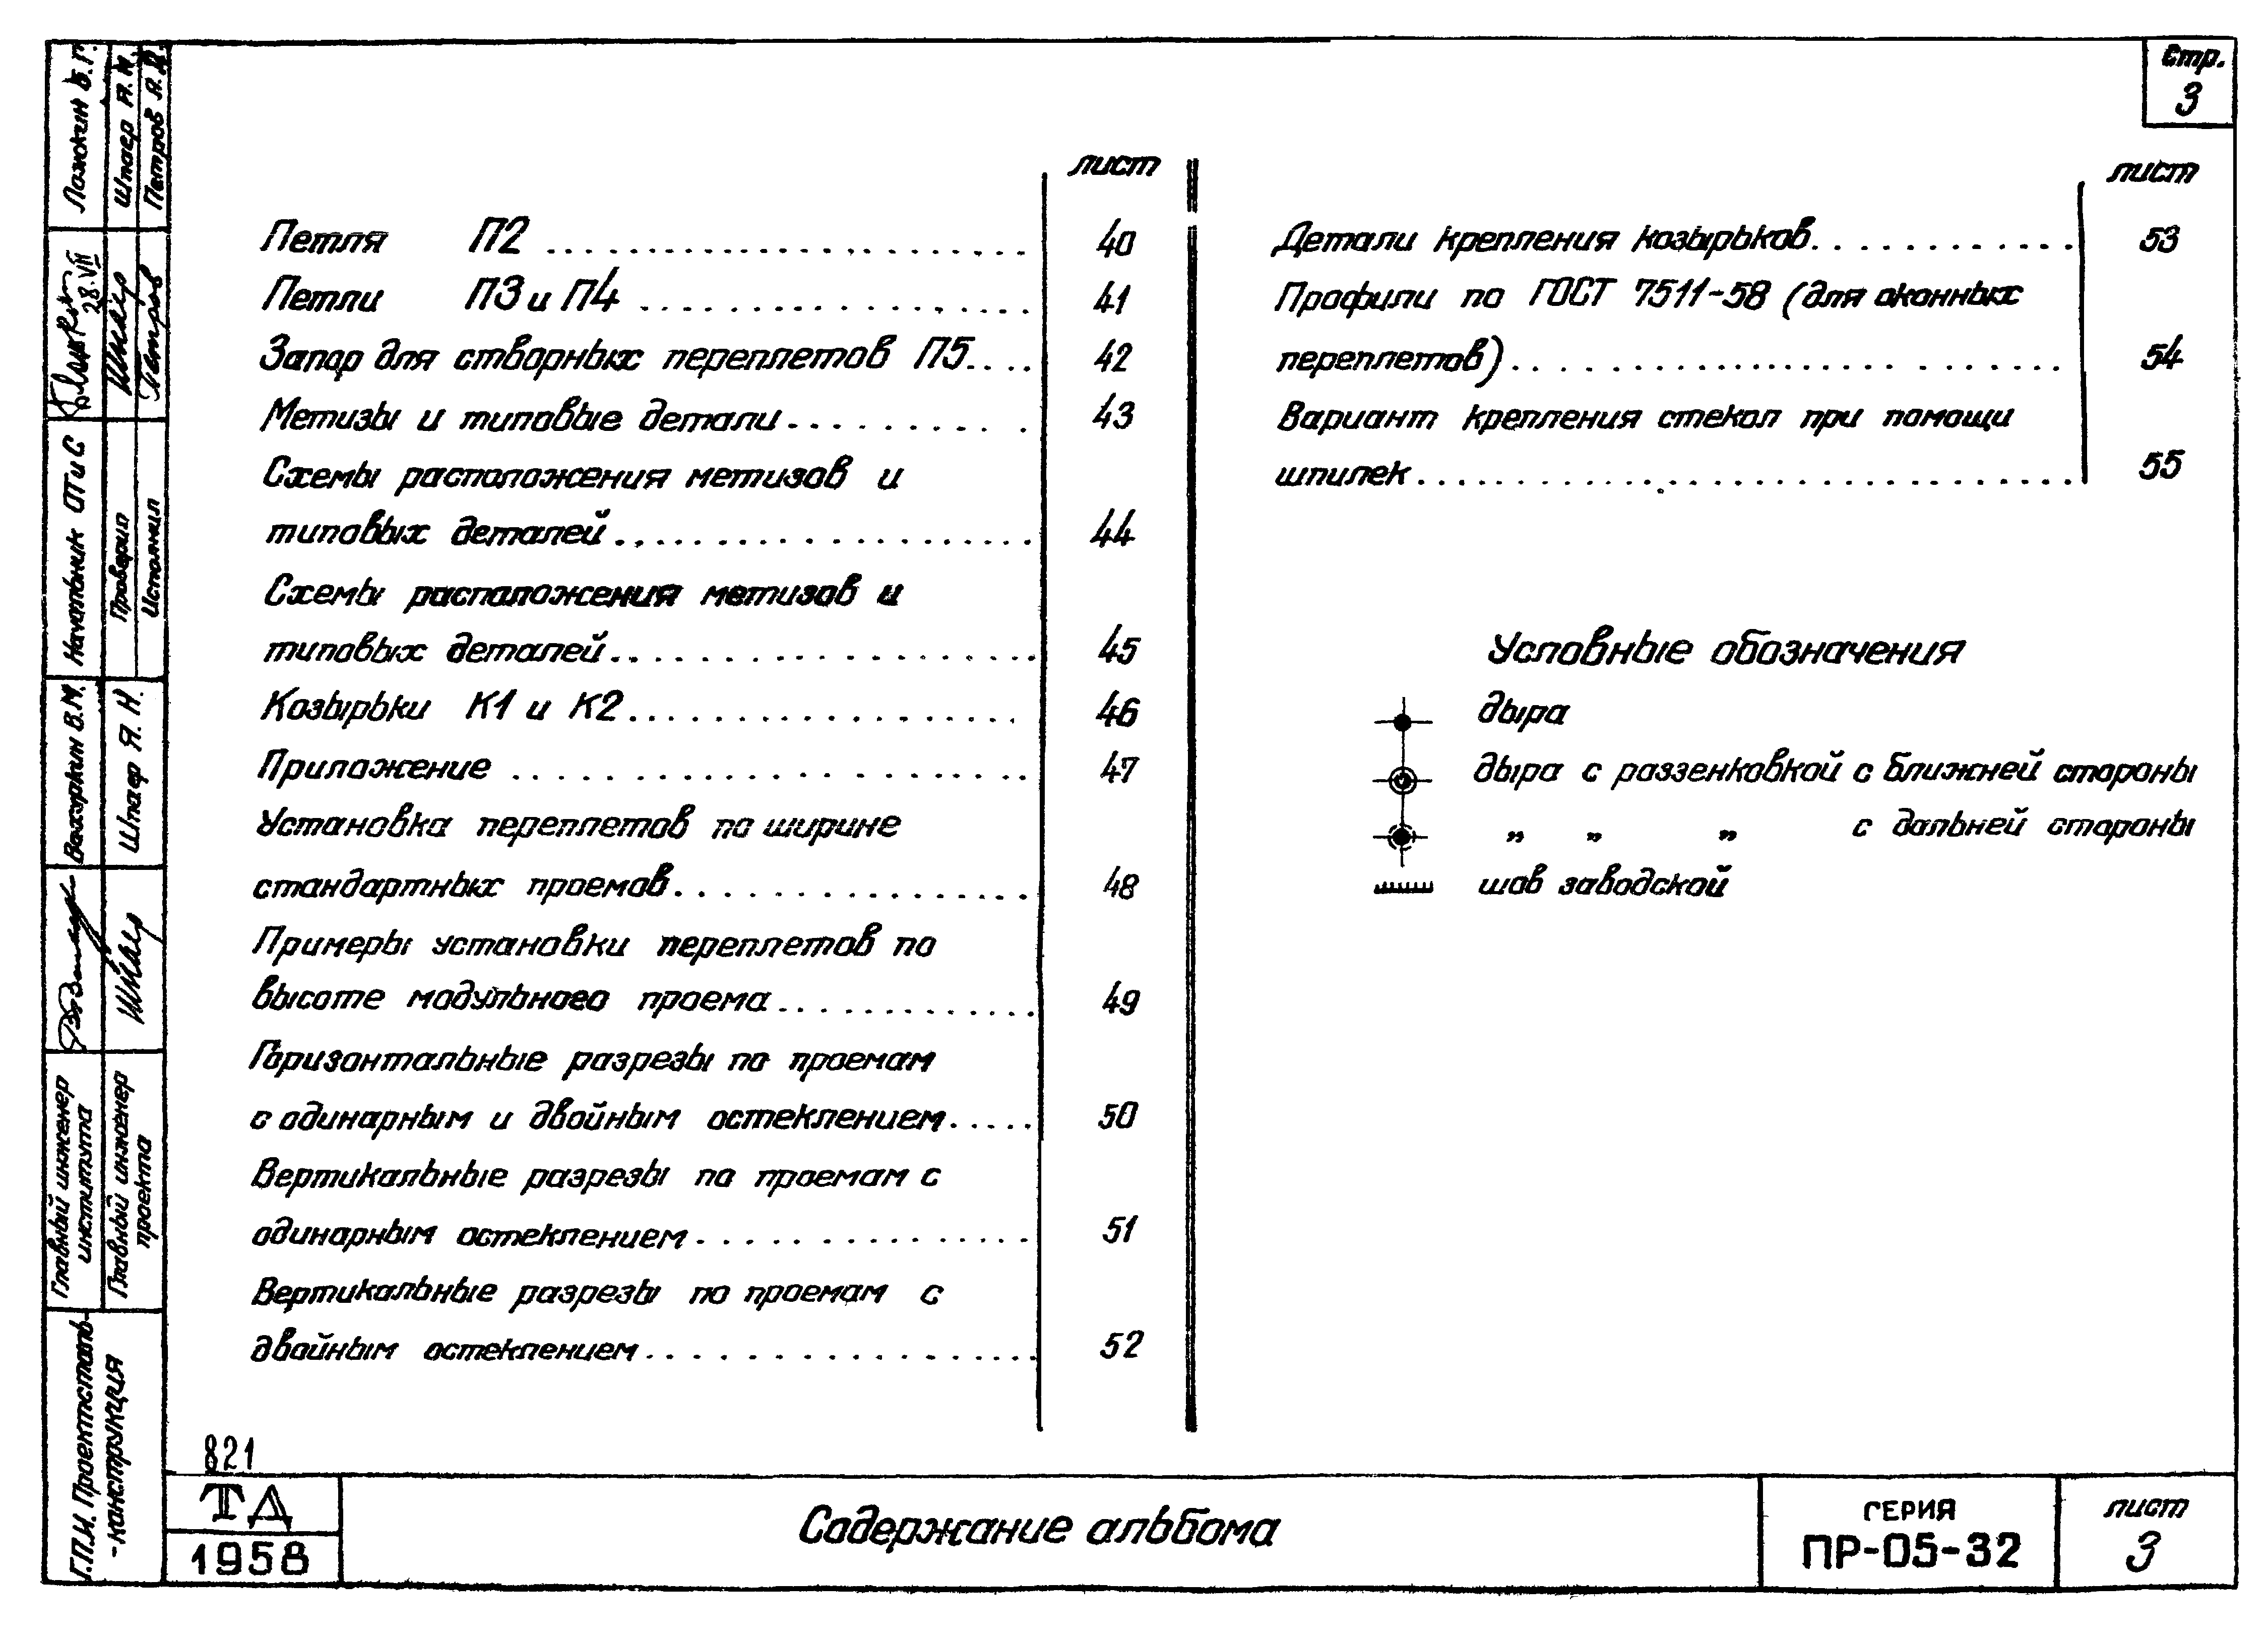 Стр.
3
лист
Петля П2 40
Петли П3 и П4 41
Запор для створных переплетов П5 42
Метизы и типовые детали 43
Схемы расположения метизов и
типовых деталей 44
Схемы расположения метизов и
типовых деталей 45
Козырьки К1 и К2 46
Приложение 47
Установка переплетов по ширине
стандартных проемов 48
Примеры установки переплетов по
высоте модульного проема 49
Горизонтальные разрезы по проемам
с одинарным и двойным остеклением 50
Вертикальные разрезы по проемам с
одинарным остеклением 51
Вертикальные разрезы по проемам с
двойным остеклением 52
лист
Детали крепления козырьков 53
Профили по ГОСТ 7511-58 (для оконных
переплетов) 54
Вариант крепления стекол при помощи
шпилек 55
Условные обозначения
дыра
дыра с раззенковкой с ближней стороны
„ „ „ с дальней стороны
шов заводской
821
ТД
1958
Содержание альбома
СЕРИЯ
ПР-05-32
лист
3
Г.П.И. Проектсталь-
-конструкция
Главный инженер
института
Главный инженер
проекта
Вахуркин В.М.
Шпаер Я. Н.
Начальник ОТиС
Проверил
Исполнил
28.VII
Петров
Ложкин Б.Г.
Шпаер Я. Н.
Петров А. Д.